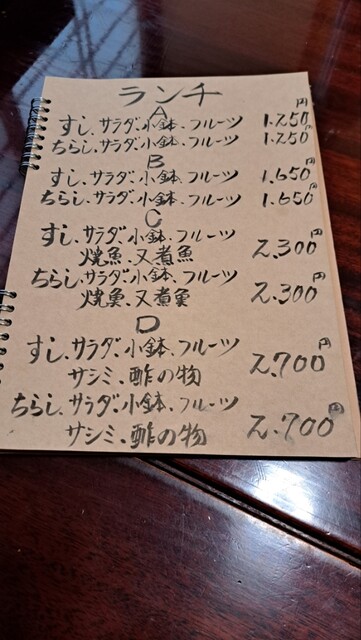 ランチ
A 円
すし、サラダ、小鉢、フルーツ 1.250
ちらし、サラダ、小鉢、フルーツ 1.250円
B
すし、サラダ、小鉢、フルーツ 1.650円
ちらし、サラダ、小鉢、フルーツ 1.650円
C
すし、サラダ、小鉢、フルーツ 2.300円
焼魚、又煮魚
ちらし、サラダ、小鉢、フルーツ 2.300円
焼魚、又煮魚
D
すし、サラダ、小鉢、フルーツ 2.700円
サシミ、酢の物
ちらし、サラダ、小鉢、フルーツ
サシミ、酢の物 2.700円